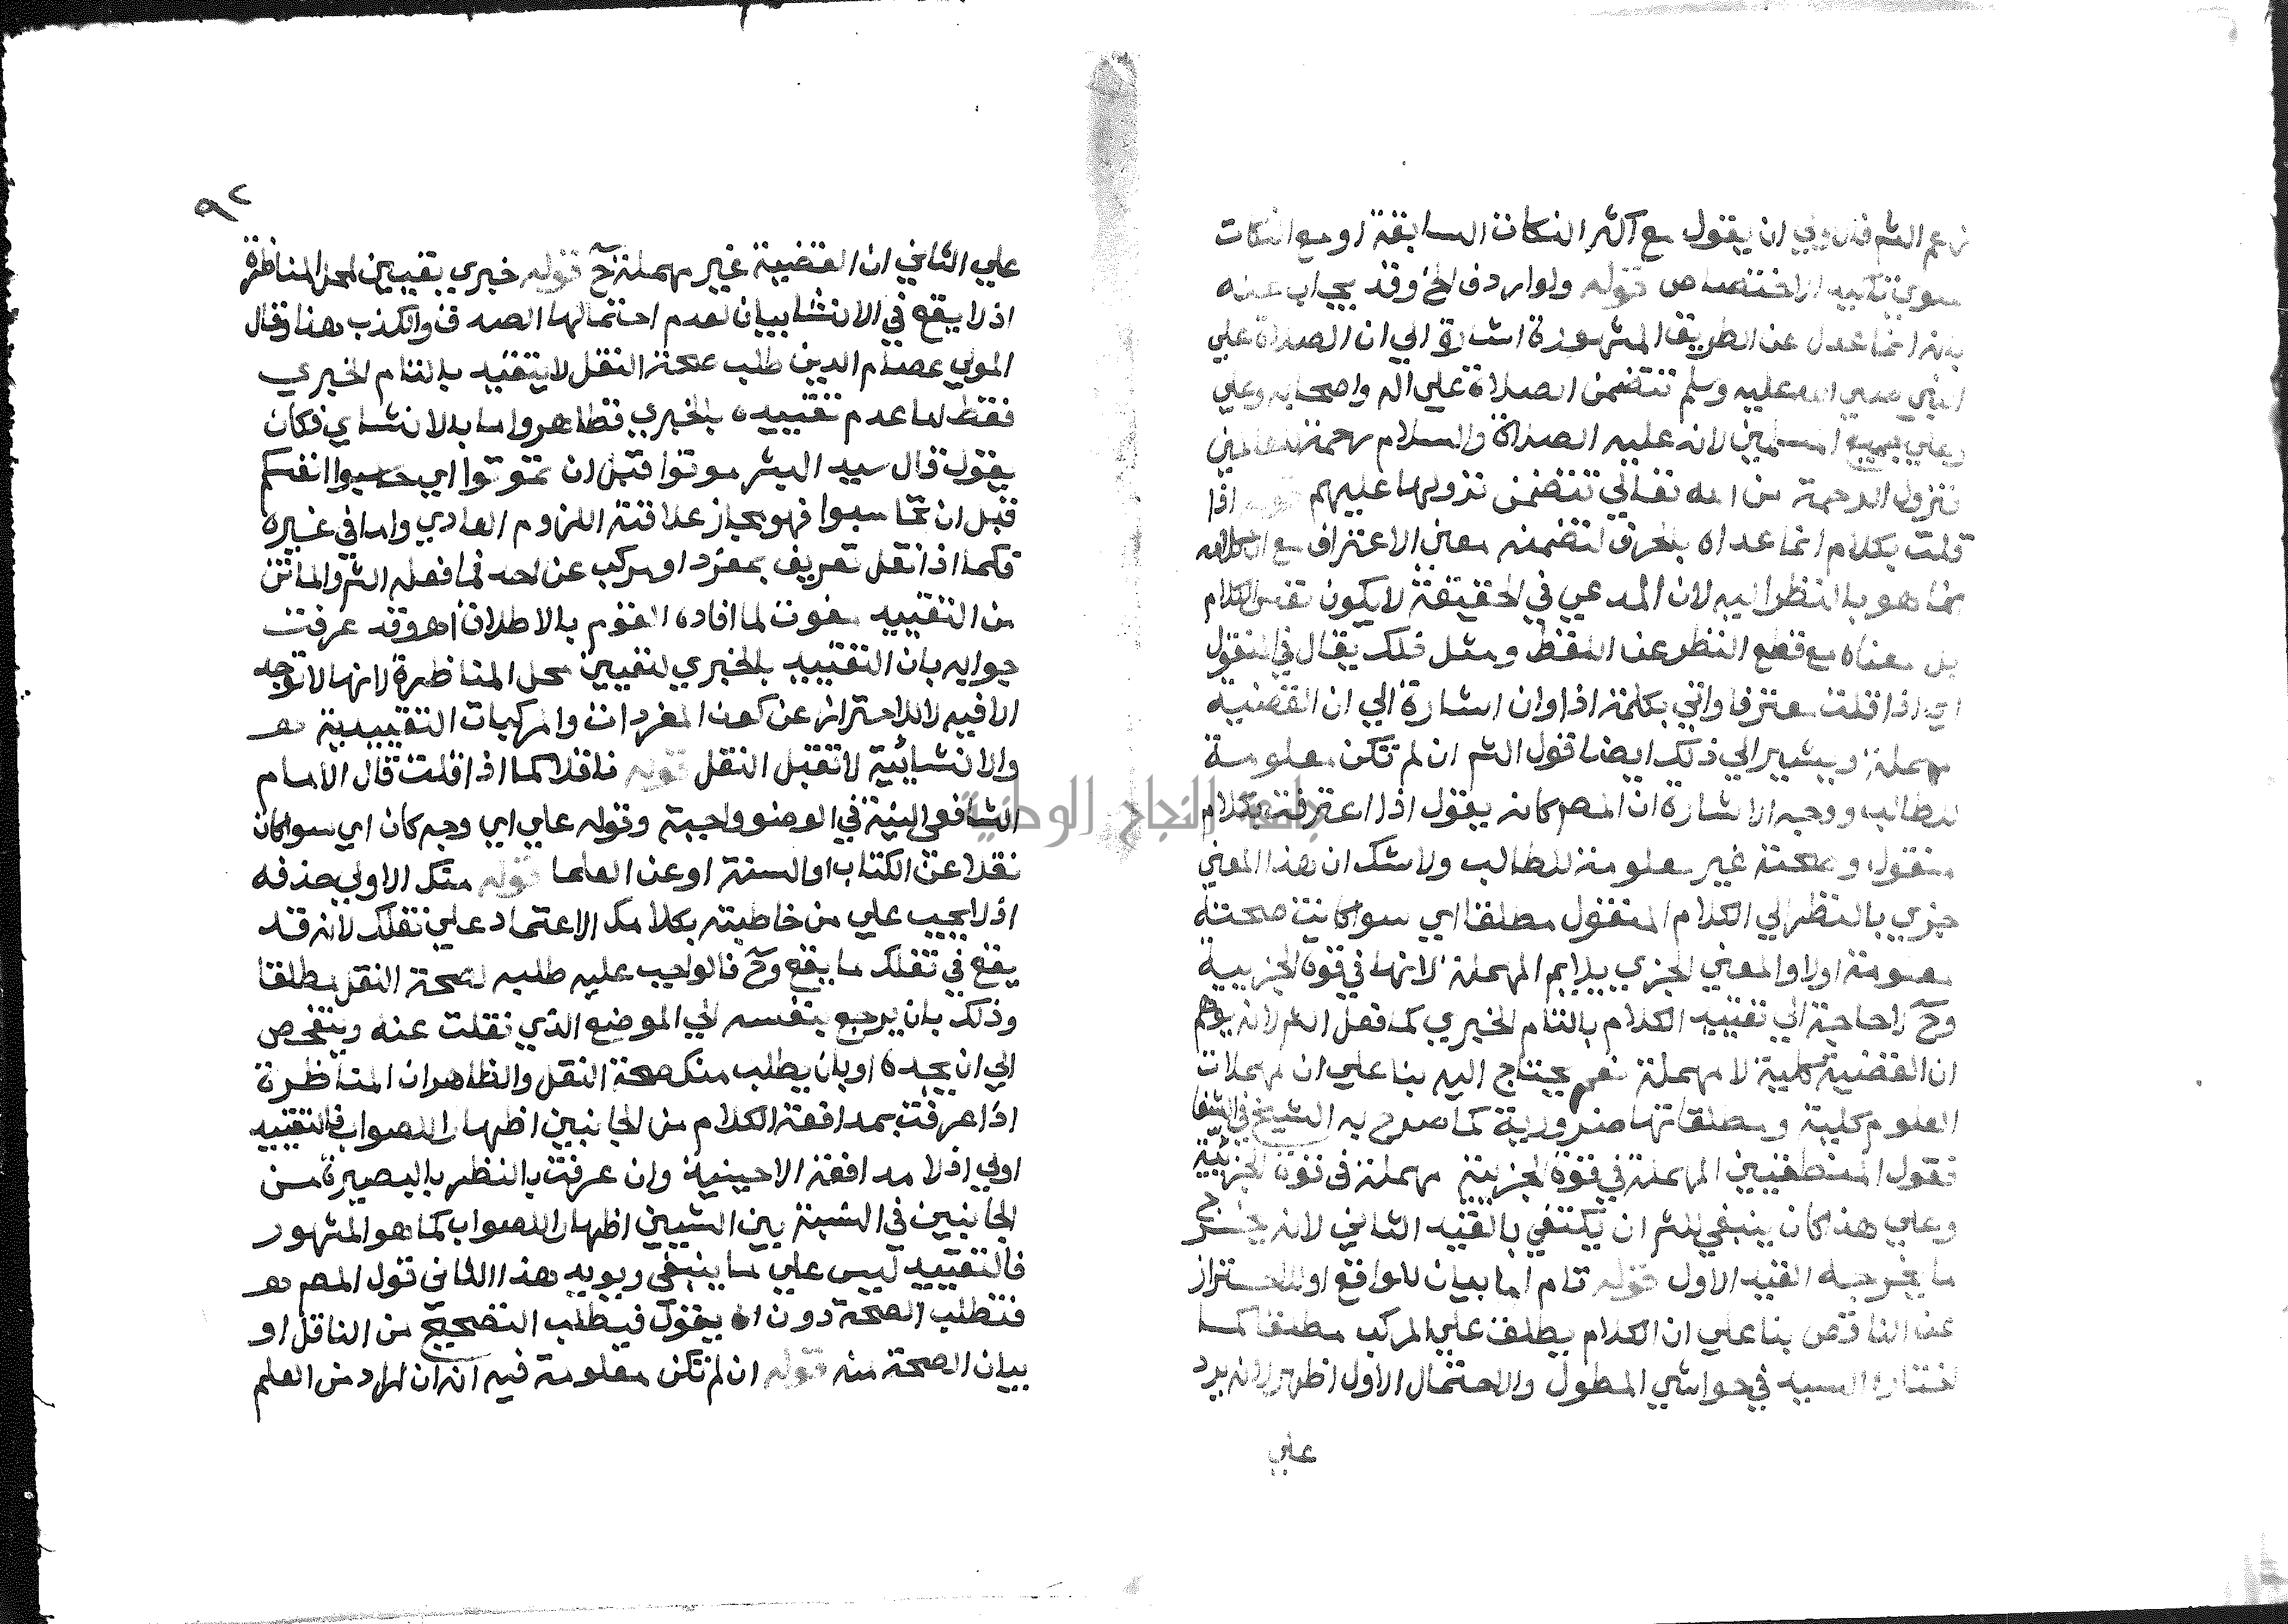 زعم الشم فالاولى ان يقول مع اكثر النكات السابقة او مع النكات
سوى نكتة الاختصاص قوله ولو اردف الخ وقد يجاب عنه
بانه انما عدل عن الطريق المشهورة اشارة الي ان الصلاة علي
النبي صلى الله عليه وسلم تتضمن الصلاة علي اله واصحابه وعلي
وعلي جميع المسلمين لانه عليه الصلاة والسلام رحمة للعالمين
نزول الرحمة من الله تعالي تتضمن نزولها عليهم قوله اذا
قلت بكلام انما عداه بالحرف لتضمنه معني الاعتراف مع ان كلامه
انما هو بالنظر اليه لان المدعي في الحقيقة لا يكون نفس الكلام
بل معناه مع قطع النظر عن اللفظ ومثل ذلك يقال في المنقول
اي اذا قلت معترفا واتي بكلمة اذا وان اشارة الي ان القضية
مهملة ويشير الي ذلك ايضا قول الشم ان لم تكن معلومة
للطالب ووجه الاشارة ان المصم كانه يقول اذا اعترفت بكلام
منقول وصحته غير معلومة للطالب ولا شك ان هذا المعني
جزي بالنظر الي الكلام المنقول مطلقا اي سوا كانت صحته
معلومة اولا والمعني الجزي يلايم المهملة لانها في قوة الجزيية
وح لا حاجة الي تقييد الكلام بالتام الخبري كما فعل الشم لانه يوهم
ان القضية كلية لا مهملة نعم يحتاج اليه بنا علي ان مهملات
العلوم كلية ومطلقاتها ضرورية كما صرح به الشيخ في الشفا
فقول المنطقيين المهملة في قوة الجزيية مهملة في قوة الجزئية
وعلي هذا كان ينبغي للشم ان يكتفي بالقيد الثاني لانه يخرج
ما يخرجه القيد الاول قوله تام اما بيان للواقع او للاحتراز
عن الناقص بنا علي ان الكلام يطلق علي المركب مطلقا كما
اختاره السيد في حواشي المطول والاحتمال الاول اظهر لانه يرد
علي
٩٢
علي الثاني ان القضية غير مهملة ح قوله خبري تعيين لمحل المناظرة
اذ لا يقع في الانشا بيان لعدم احتمالها الصدق والكذب هنا وقال
المولي عصام الدين طلب صحة النقل لا يتقيد بالتام الخبري
فقط اما عدم تقييده بالخبري فظاهر واما بالانشاي فكان
يقول قال سيد البشر موتوا قبل ان تموتوا اي حاسبوا انفسكم
قبل ان تحاسبوا فهو مجاز علاقته اللزوم العادي واما في غيره
فكما اذا نقل تعريف بمفرد او مركب عن احد فما فعله الشم والماتن
من التقييد مفوت لما افاده القوم بالاطلاق اهو وقد عرفت
جوابه بان التقييد بالخبري لتعيين محل المناظرة لانها لا توجد
الا فيه لا للاحتراز عن كون المفردات والمركبات التقييدية هـ
والانشائية لا تقبل النقل قوله ناقلا كما اذا قلت قال الامام
الشافعي النية في الوضو واجبة وقوله علي اي وجه كان اي سوا كان
نقلا عن الكتاب او السنة او عن العلما قوله منك الاولي حذفه
اذ لا يجب علي من خاطبته بكلامك الاعتماد علي نقلك لانه قد
يقع في نقلك ما يقع وح فالواجب عليه طلبه لصحة النقل مطلقا
وذلك بان يرجع بنفسه الي الموضع الذي نقلت عنه ويتفحص
الي ان يجده او بان يطلب منك صحة النقل والظاهر ان المناظرة
اذا عرفت بمدافعة الكلام من الجانبين اظهارا للصواب فالتقييد
اولي اذ لا مدافعة الا حينيذ وان عرفت بالنظر بالبصيرة من
الجانبين في النسبة بين الشيين اظهارا للصواب كما هو المشهور
فالتقييد ليس علي ما ينبغي ويويد هذا الثاني قول المصم هـ
فتطلب الصحة دون ان يقول فيطلب التصحيح من الناقل او
بيان الصحة منه قوله ان لم تكن معلومة فيه انه ان اراد من العلم
جامعة النجاح الوطنية